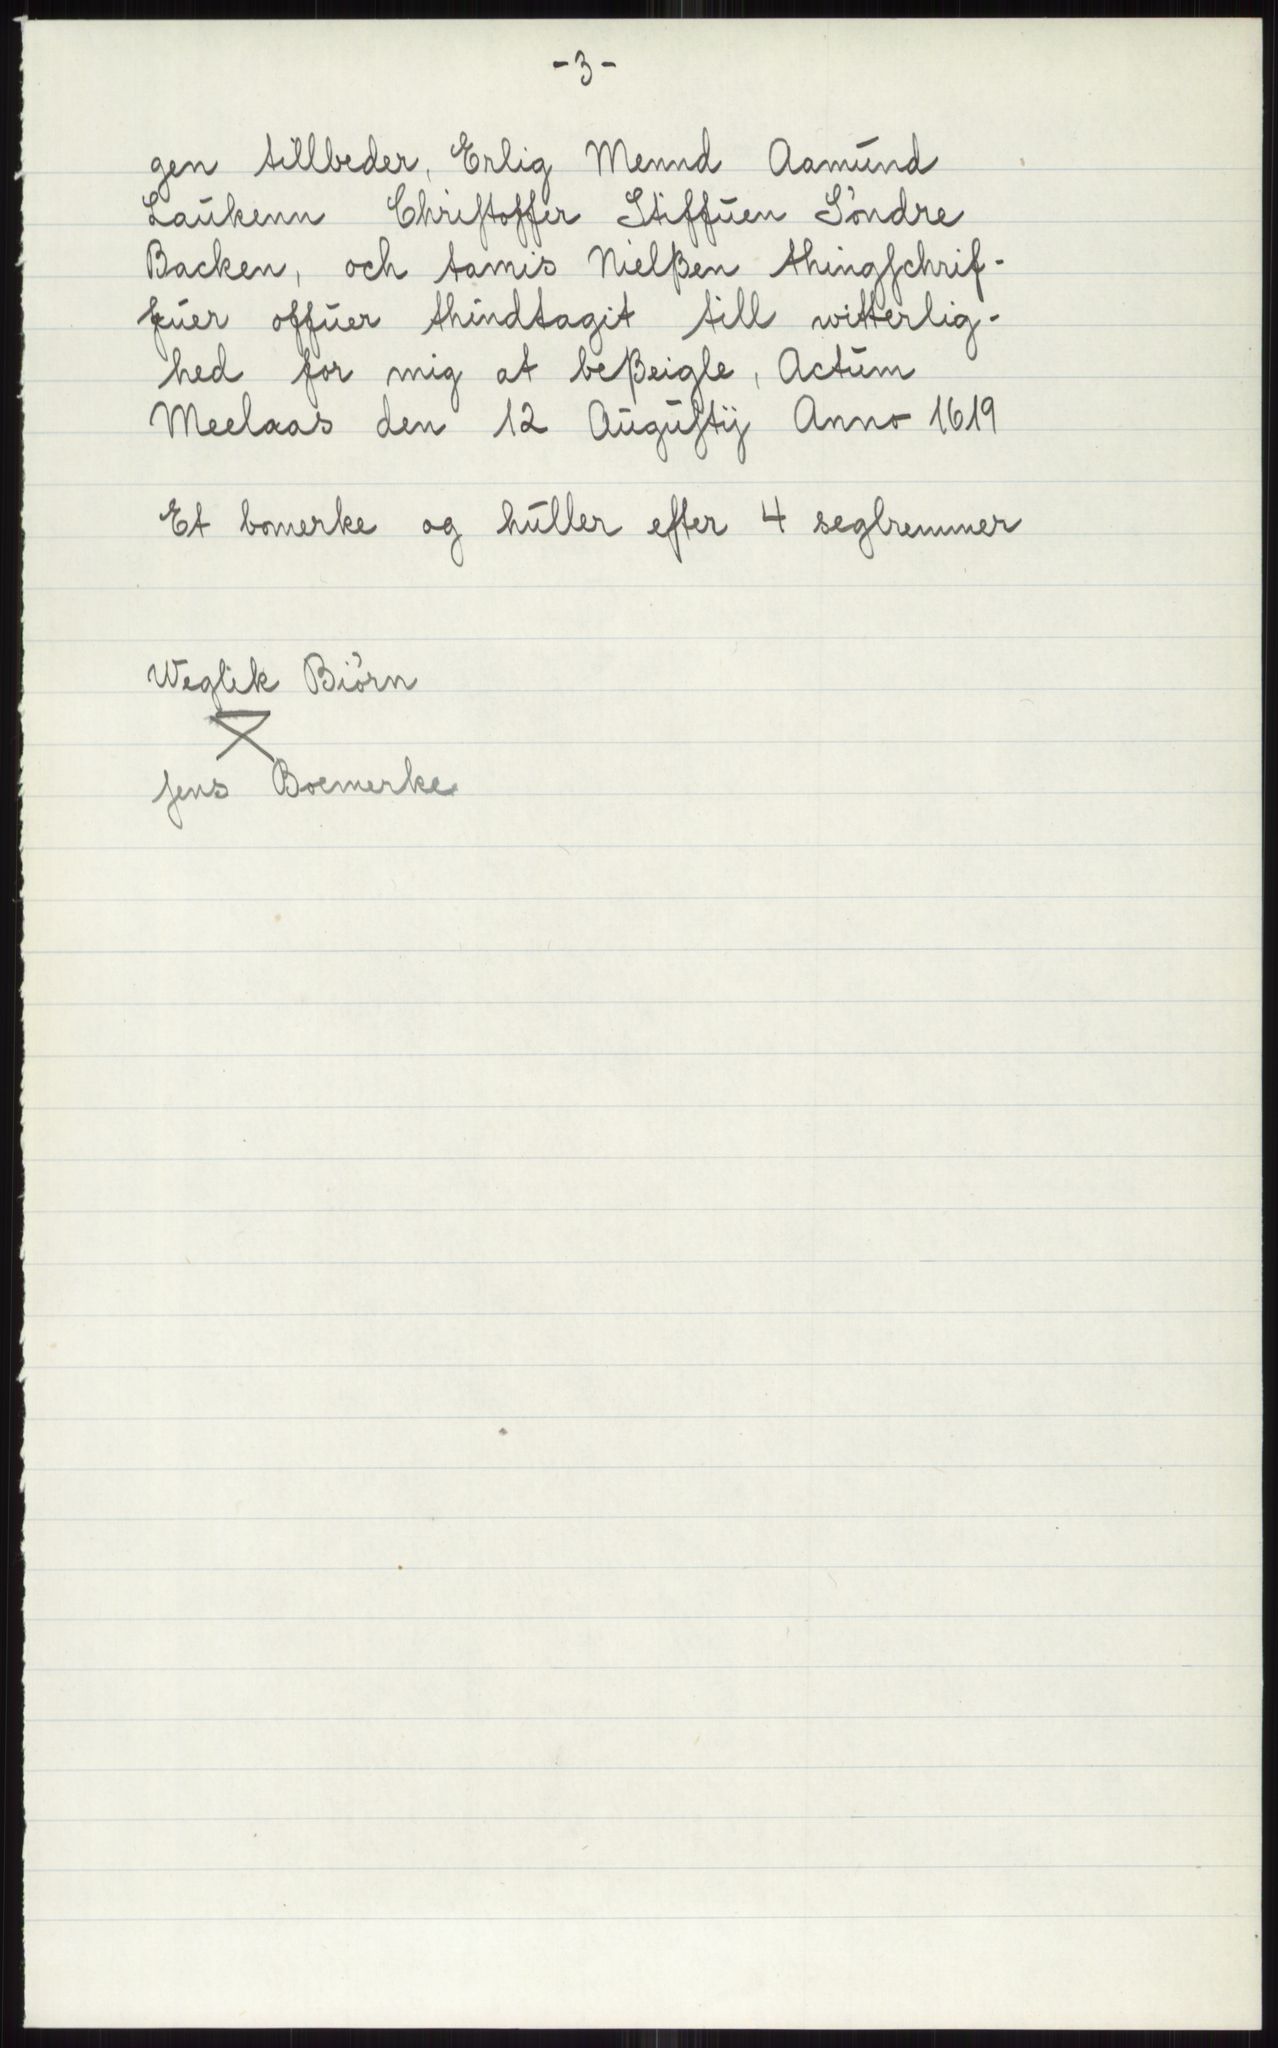 - 3 -
gen tillbeder, Erlig Mennd Aamund
Laukenn Christoffer Stiffuen Söndre
Backen, och tamis Nielßen thingschrif-
fuer offuer thindtagit till witterlig-
hed for mig at beßeigle, Actum
Meelaas den 12 Augustij Anno 1619
Et bomerke og huller efter 4 seglremmer
Weglik Biörn
Jens Boemerke